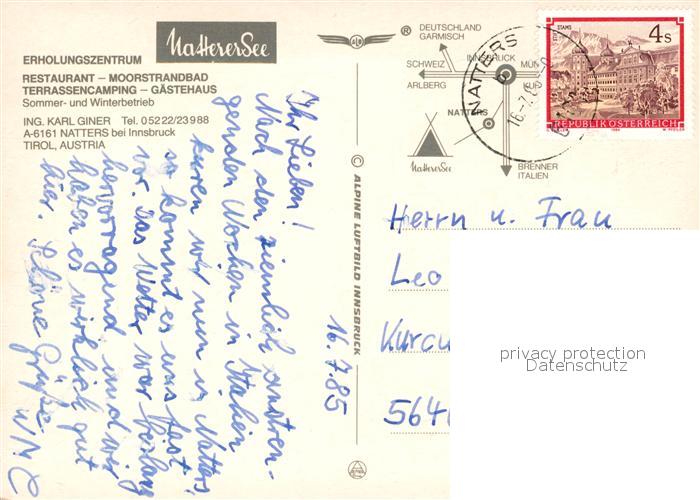 Natterer See
ERHOLUNGSZENTRUM
RESTAURANT – MOORSTRANDBAD
TERRASSENCAMPING – GÄSTEHAUS
Sommer- und Winterbetrieb
ING. KARL GINER Tel. 05222/23988
A-6161 NATTERS bei Innsbruck
TIROL, AUSTRIA
Ihr Lieben!
Nach den ziemlich anstren-
genden Wochen in Italien
kuren wir nun in Natters,
so kommt es uns fast
vor. Das Wetter war bislang
hervorragend und wir
haben es wirklich gut
hier. Schöne Grüße
16.7.85
© ALPINE LUFTBILD INNSBRUCK
ALB
®
DEUTSCHLAND
GARMISCH
INNSBRUCK
SCHWEIZ
MÜN
ARLBERG
KUF
NATTERS
Natterer See
BRENNER
ITALIEN
NATTERS
STIFT STAMS
4 S
REPUBLIK ÖSTERREICH
1984
W. PFEILER
Herrn u. Frau
Leo
Kurcu
5640
privacy protection
Datenschutz